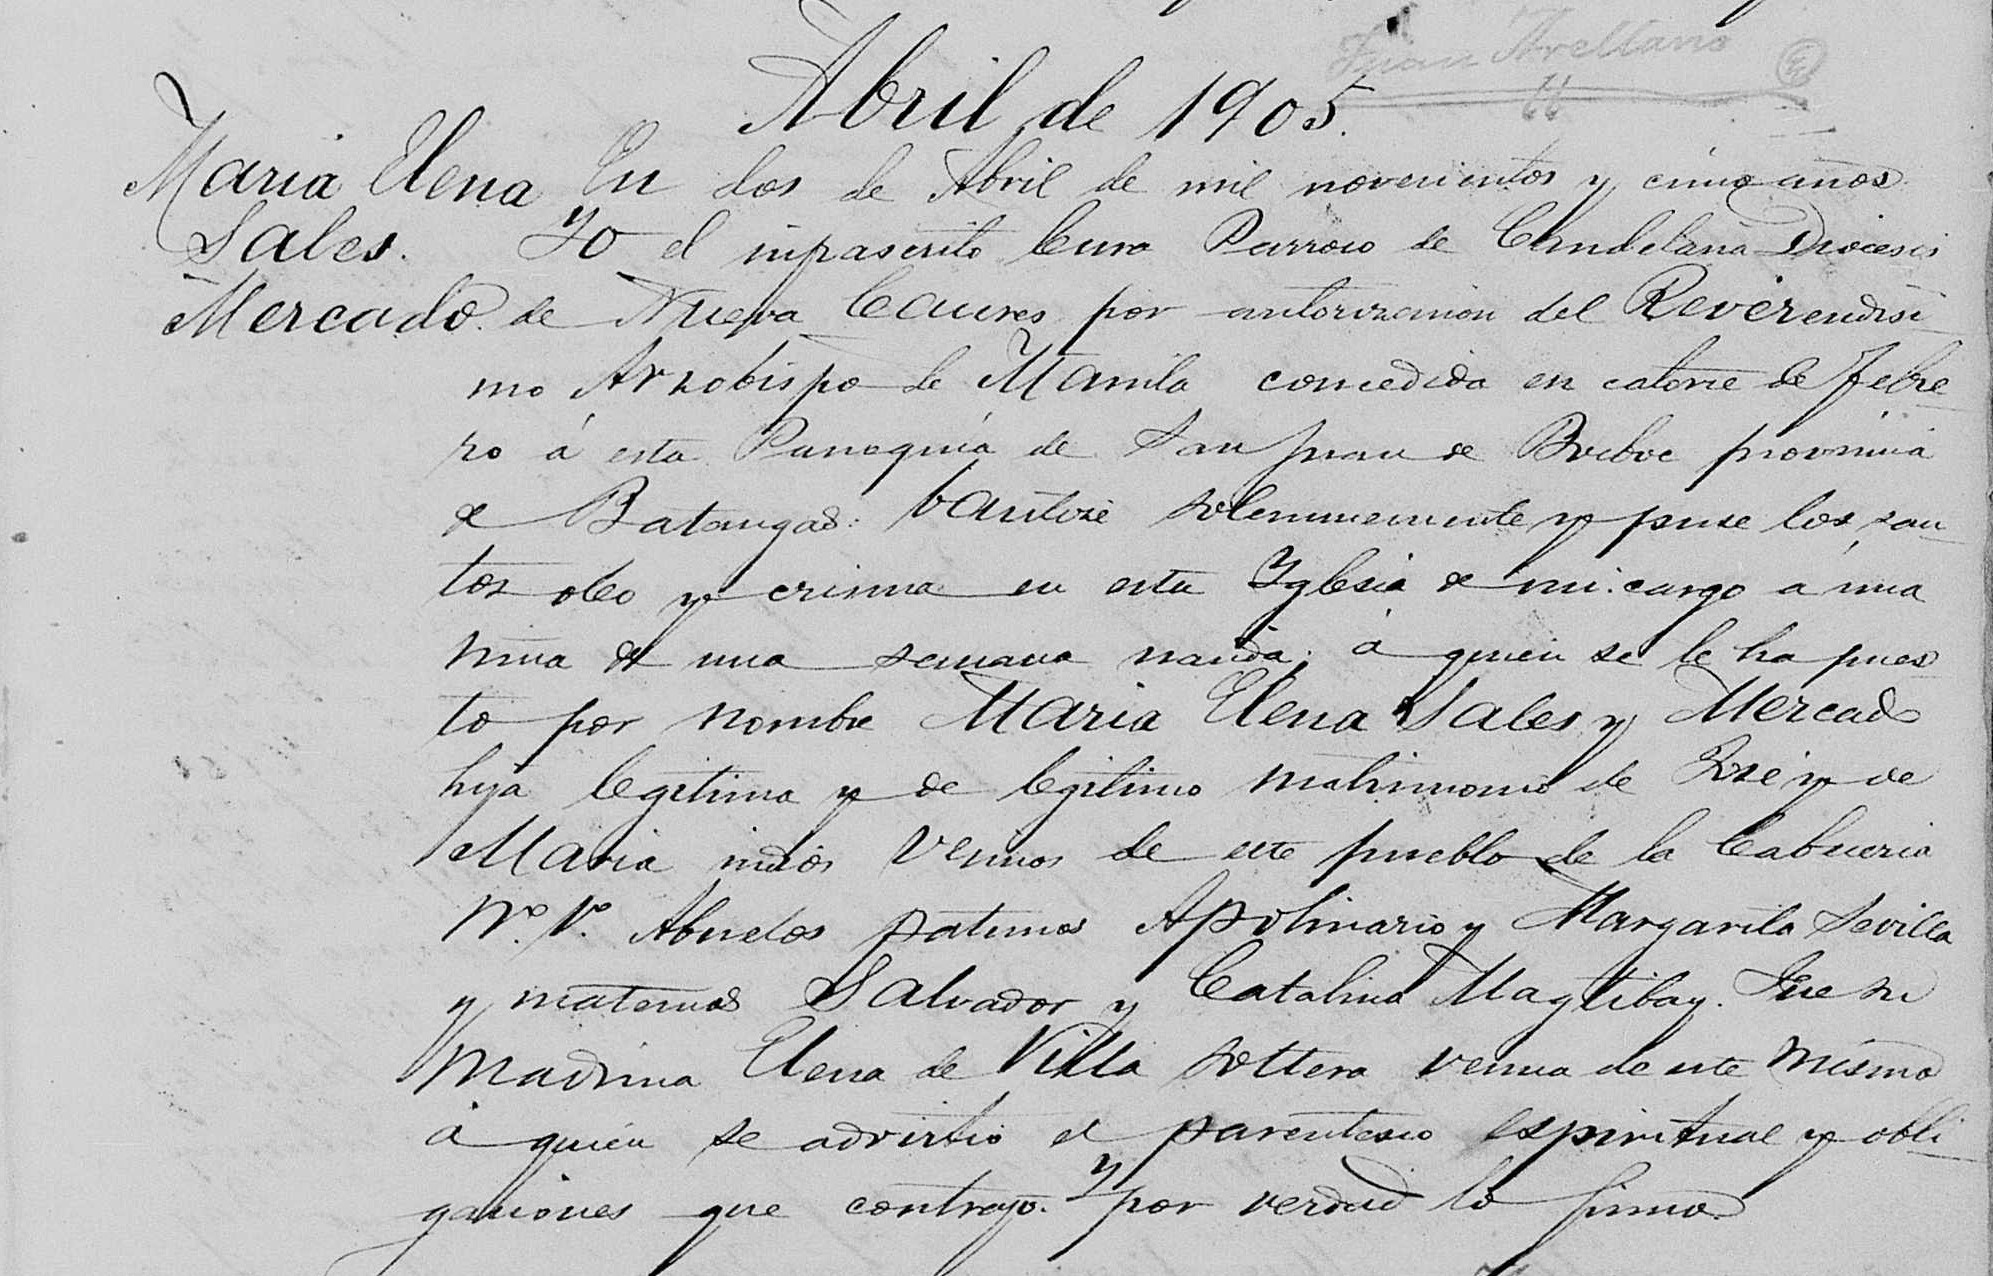 Juan Arellano
Abril de 1905.
Maria Elena
Sales.
Mercado.
En dos de Abril de mil novecientos y cinco años
Yo el infrascrito Cura Parroco de Candelaria Diocesis
de Nueva Caceres por autorizacion del Reverendisi
mo Arzobispo de Manila concedida en catorce de Febre
ro á esta Parroquia de San Juan de Bocboc provincia
de Batangas: bautizé solemnemente y puse los san
tos oleo y crisma en esta Yglesia de mi cargo a una
niña de una semana nacida; á quien se le ha pues
to por nombre Maria Elena Sales y Mercado
hija legitima y de legitimo matrimonio de José y de
Maria indios vecinos de este pueblo de la Cabeceria
Nº 1º Abuelos paternos Apolinario y Margarita Sevilla
y maternos Salvador y Catalina Magtibay. Fue su
Madrina Elena de Villa soltera vecina de este mismo
á quien se advirtio el parentesco espiritual y obli
gaciones que contrajo. Y por verdad lo firmo.